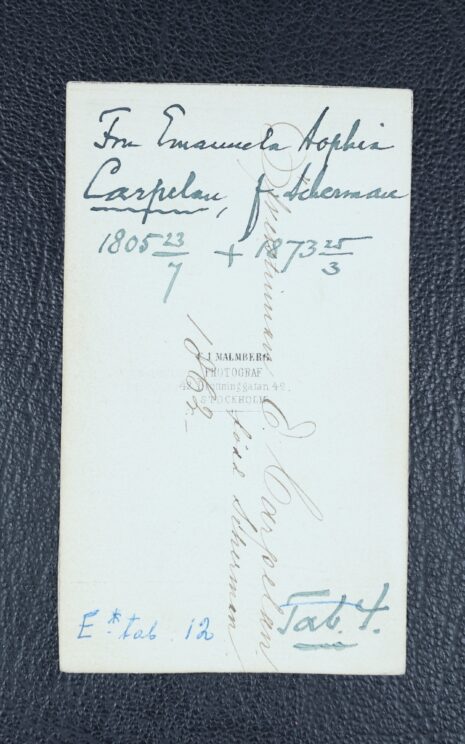 Fru Emanuela Sophia
Carpelan, f. Scherman
1805 23/7 + 1873 25/3
C. J. MALMBERG
PHOTOGRAF
42 Drottninggatan 42.
STOCKHOLM
E. Carpelan
född Scherman
1862–
E.* tab. 12
Tab. 4.